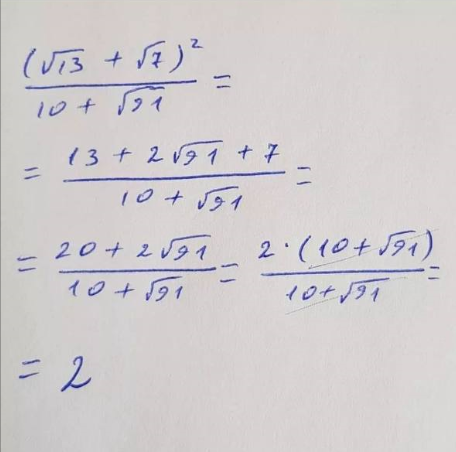 (√13 + √7)² / (10 + √91) =
= (13 + 2√91 + 7) / (10 + √91) =
= (20 + 2√91) / (10 + √91) = 2·(10 + √91) / (10 + √91) =
= 2